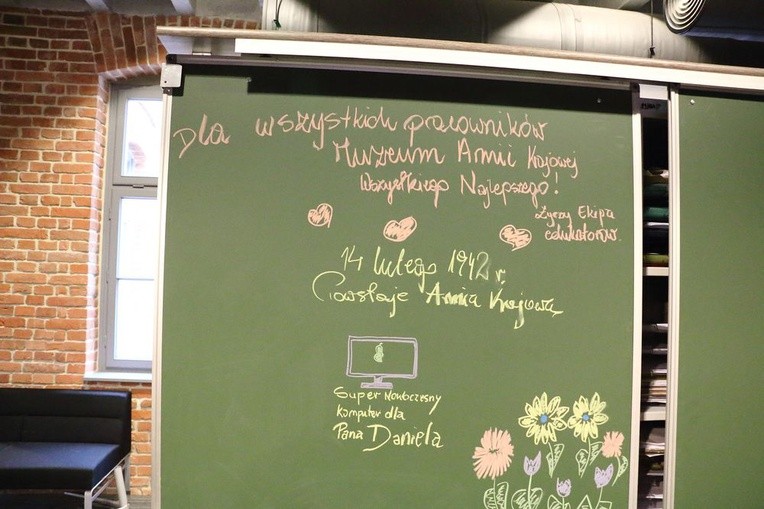 Dla wszystkich pracowników
Muzeum Armii Krajowej
Wszystkiego Najlepszego!
życzy Ekipa
edukatorów.
14 lutego 1942 r.
Powstaje Armia Krajowa
Super Nowoczesny
komputer dla
Pana Daniela